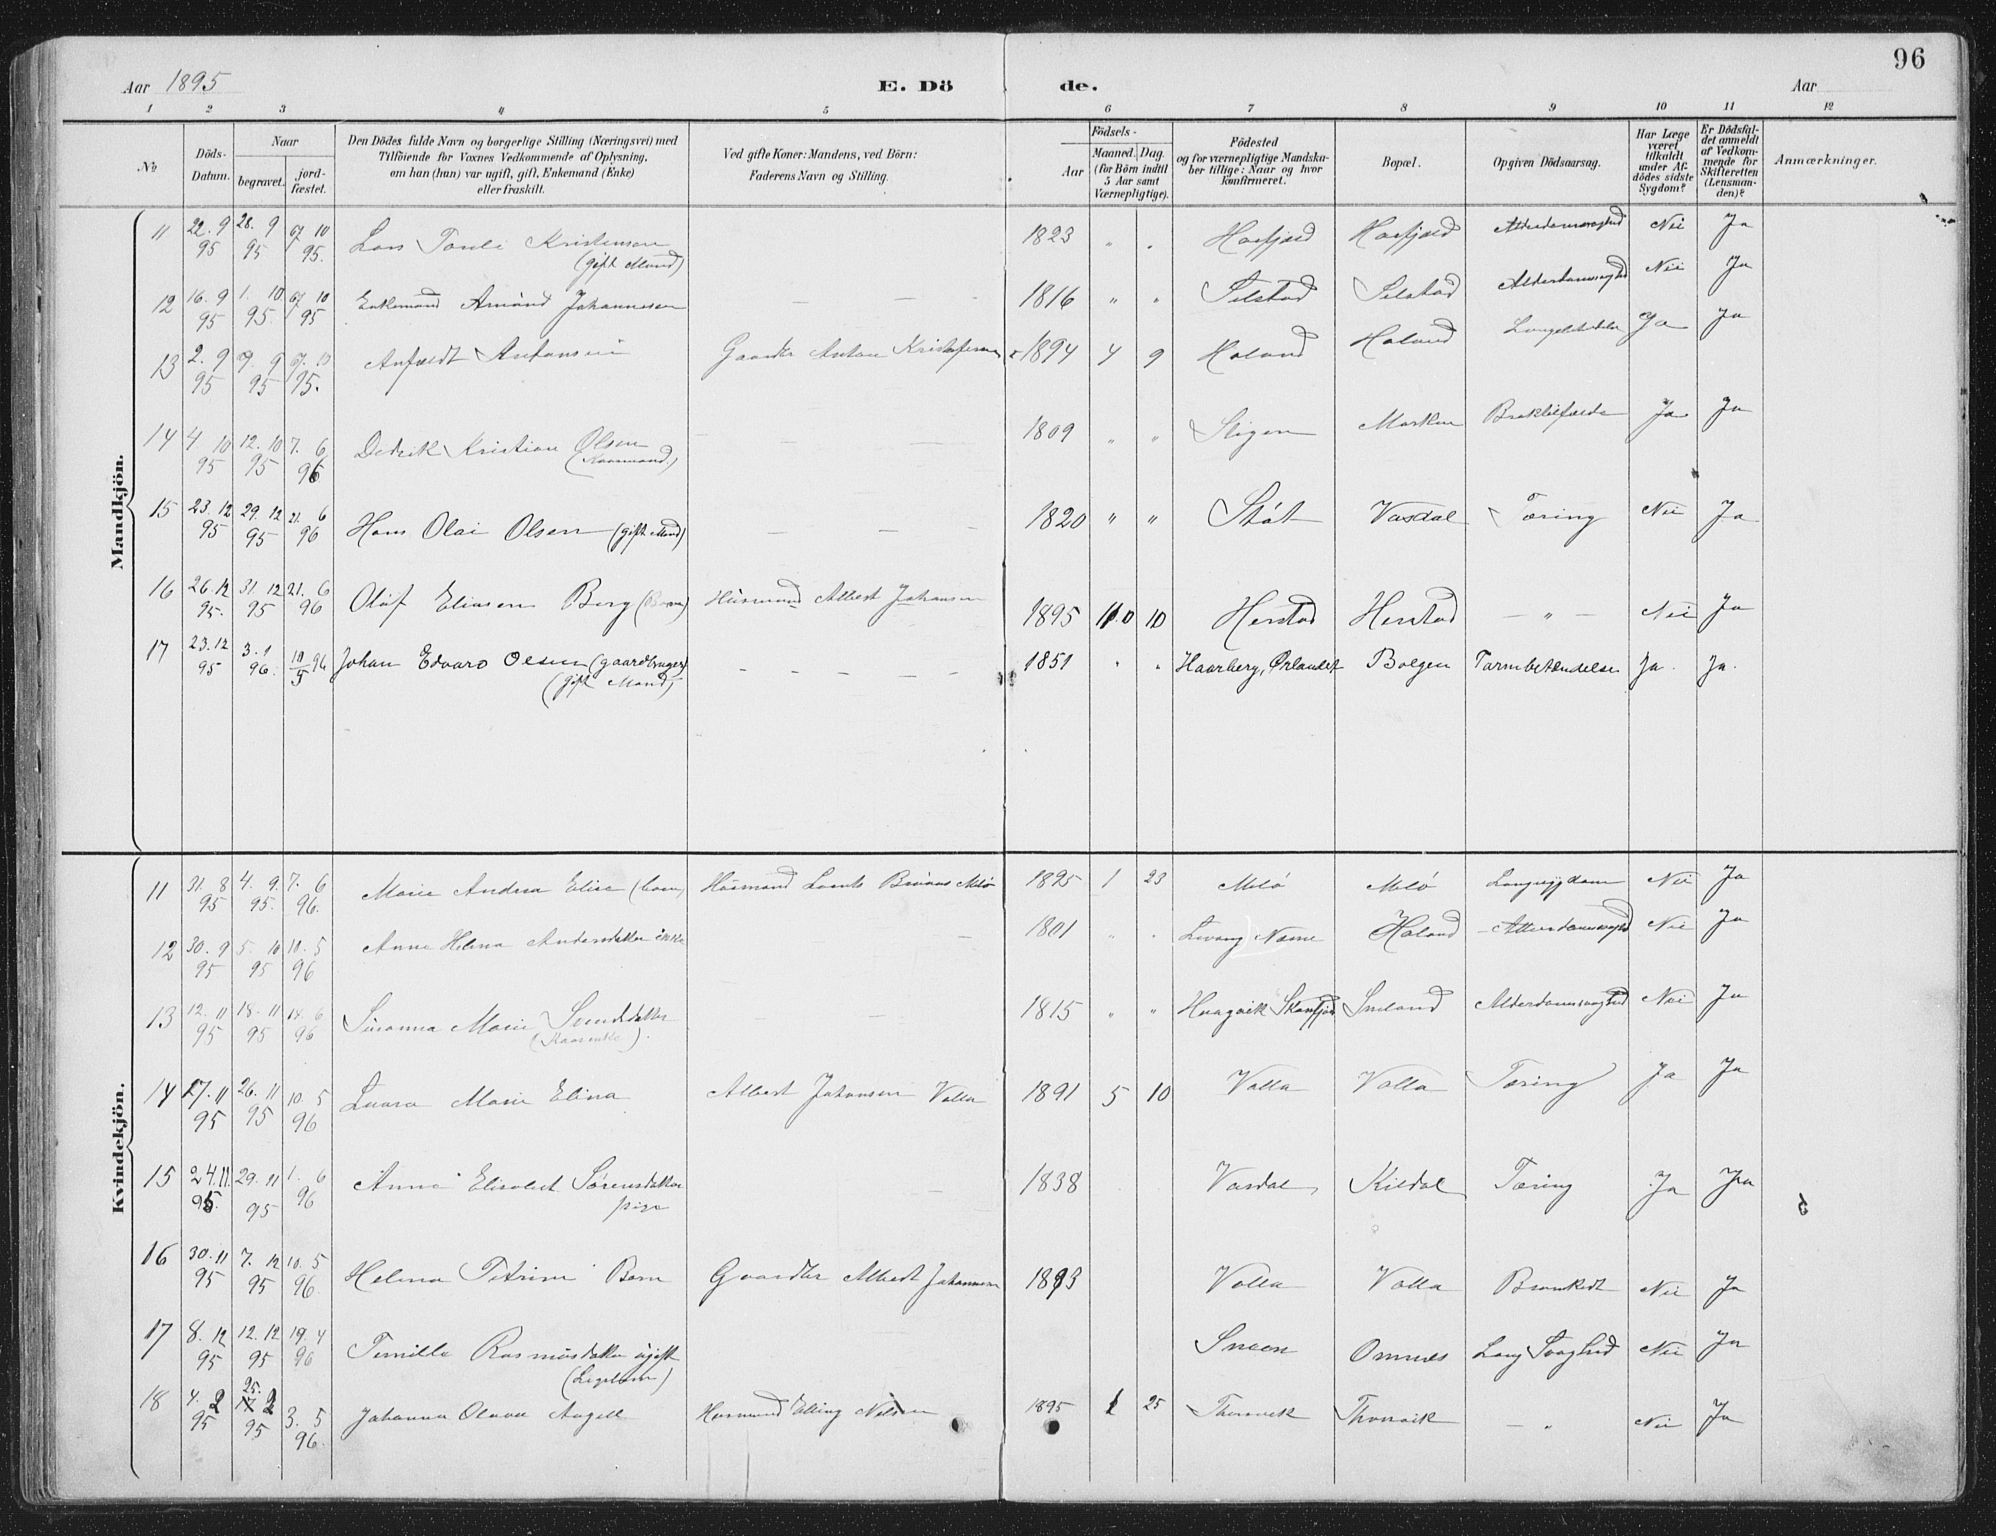 96
Aar 1895 E. Döde. Aar
1 2 3 4 5 6 7 8 9 10 11 12
№
Döds-Datum.
Naar
begravet. jord-fæstet.
Den Dödes fulde Navn og borgerlige Stilling (Næringsvei) med
Tilföiende for Voxnes Vedkommende af Oplysning,
om han (hun) var ugift, gift, Enkemand (Enke)
eller fraskilt.
Ved gifte Koner: Mandens, ved Börn:
Faderens Navn og Stilling.
Födsels-
Aar
Maaned. Dag.
(for Börn indtil
5 Aar samt
Værnepligtige).
Födested
og for værnepligtige Mandska-
ber tillige: Naar og hvor
konfirmeret.
Bopæl.
Opgiven Dödsaarsag.
Har Læge
været
tilkaldt
under Af-
dödes sidste
Sygdom?
Er Dödsfal-
det anmeldt
af Vedkom-
mende for
Skifteretten
(Lensman-
den)?
Anmærkninger.
Mandkjön.
11 22. 9 95 28. 9 95 10 95. Kristensen (gift Mand) 1823 " " Alderdomssvaghed Nei Ja
12 16. 9 95 1. 10 95. 10 95 Enkemand Amund Johannesen — — 1816 " " Selstad Selstad Alderdomssvaghed Nei Ja
13 2. 9 95 9 95 95. Antonsen Gaardbr Anton Kristofersen 1894 4 9 Haland Haland Ja Ja
14 4 10 95 12. 10 95 7. 6 96 Dedrik Kristian Olsen (Kaarmand.) — — 1809 " " Stigen Marken Ja Ja
15 23. 12 95 29. 12 95 21. 6 96 Hans Olai Olsen (gift Mand) — — — 1820 " " Støt Vasdal Tæring Nei Ja
16 26. 12 95. 31. 12 95 21. 6 96 Olaf Eliasen Berg (Barn) Husmand Albert Johansen 1895 10 Herstad Herstad — " — Nei Ja
17 23. 12 95 3. 1 96. 10/5 96 Johan Edvard Olsen (gaardbruger) (gift Mand) — — — — 1851 " " Haarberg, Ørlandet Bolgen Tarmbetændelse Ja. Ja.
Kvindekjön.
11 31. 8 95 4. 9. 95. 7. 6 96. Marie Andrea Elise (barn) Husmand Melø 1895 1 23 Melø Melø Nei Ja
12 30. 9 95 5. 10 95 10. 5 96 Anne Helena Andersdatter enke — 1801 " " Haland Alderdomssvaghed Nei Ja
13 12. 11 95 18. 11 95 14. 6 96 Susanna Marie (Kaarenke). — — 1815 " " Alderdomssvaghed Nei Ja
14 17. 11 95 26. 11 95 10. 5 96 Laura Marie Elina Albert Johansen Valla 1891 5 10 Valla Valla Tæring Ja Ja
15 24. 11. 95. 29. 11 95 1. 6 96 Anne Elisabet Sørensdatter pige — 1838 Vasdal Kildal Tæring Ja Ja
16 30. 11 95 7. 12 95 10. 5 96. Helena Petrine Barn Gaardbr Albert Johansen 1893 Valla Valla Nei Ja
17 8. 12 95 12. 12 95 19. 4 96 Rasmusdatter ugift Omnes Nei Ja
18 4. 2 95 25. 2 95 3. 5 96. Johanna Olava Angell Husmand Elling Nilsen 1895 1 25 Thorsvik Thorsvik — " Nei Ja